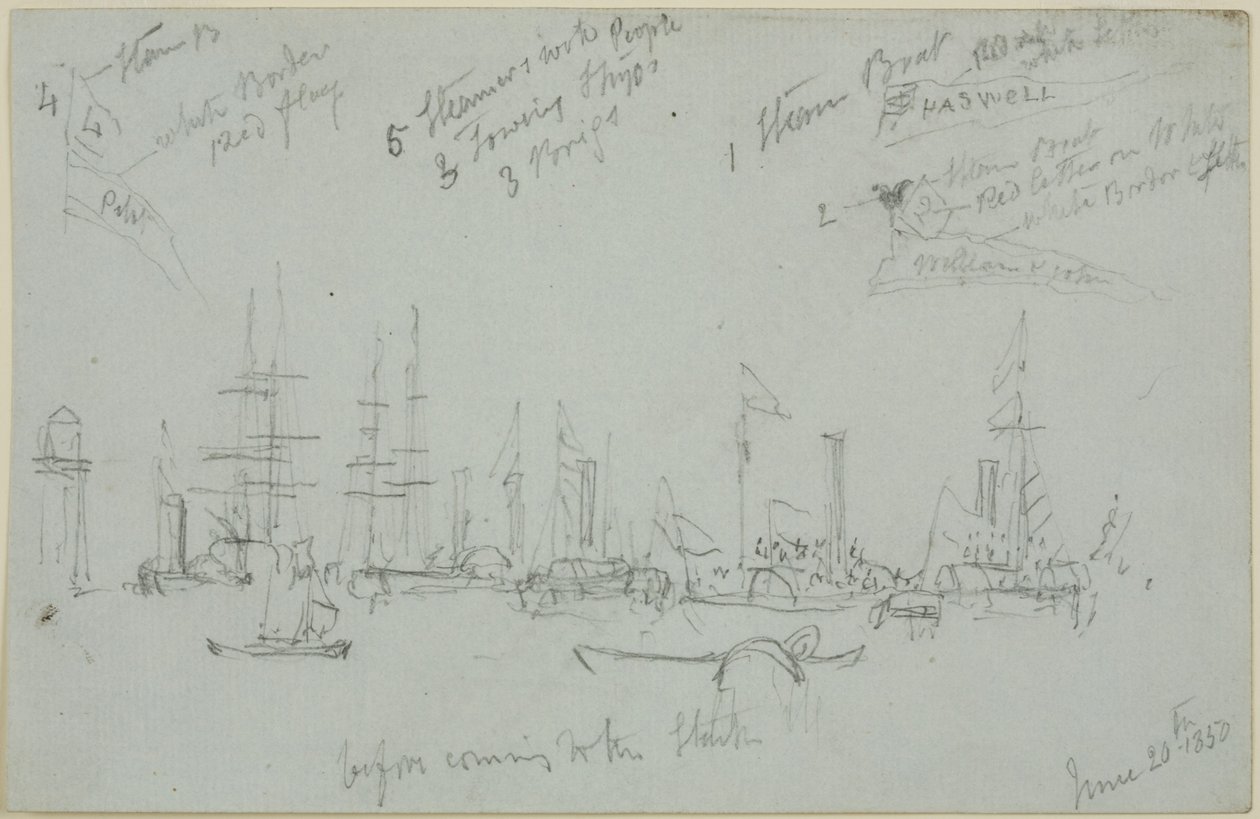 4
Steam B
White Border
Red flag
5 Steamers with People
3 Towing Ships
3 Brigs
1 Steam Boat
Red
white
HASWELL
2
Steam Boat
Red letter on White
White Border &
William & John
before coming to the
June 20th 1850